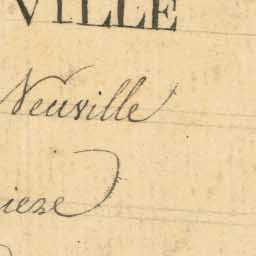 VILLE
Neuville
ieze